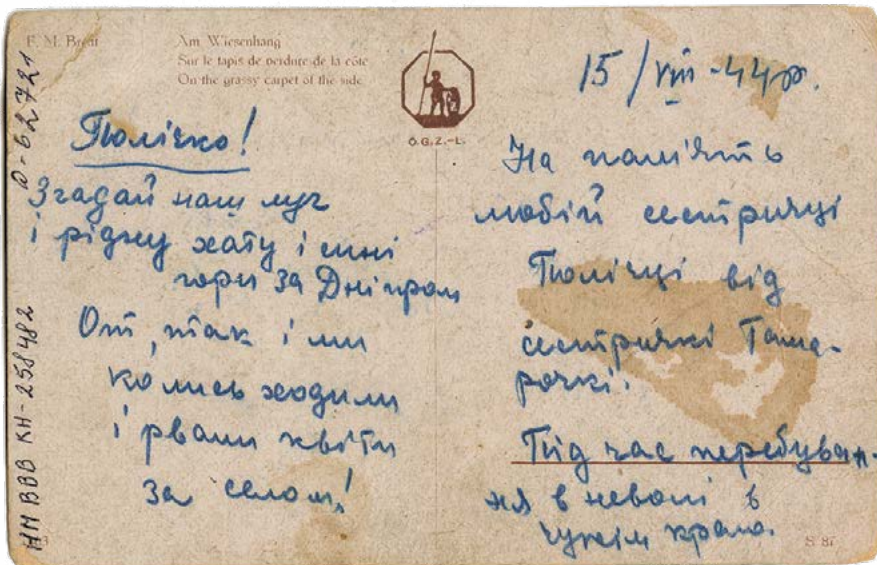 F. M. Bredt
Am Wiesenhang
Sur le tapis de verdure de la côte
On the grassy carpet of the side
O.G.Z.-L.
Полічко!
Згадай наш луг
і рідну хату і сині
гори за Дніпром
От, так і ми
колись ходили
і рвали квіти
за селом!
15/VIII-44р.
На пам'ять
любій сестричці
Полічці від
сестрички Тама-
рочки.
Під час перебуван-
ня в неволі в
чужім краю.
S. 87
НМ ВВВ КН-258482